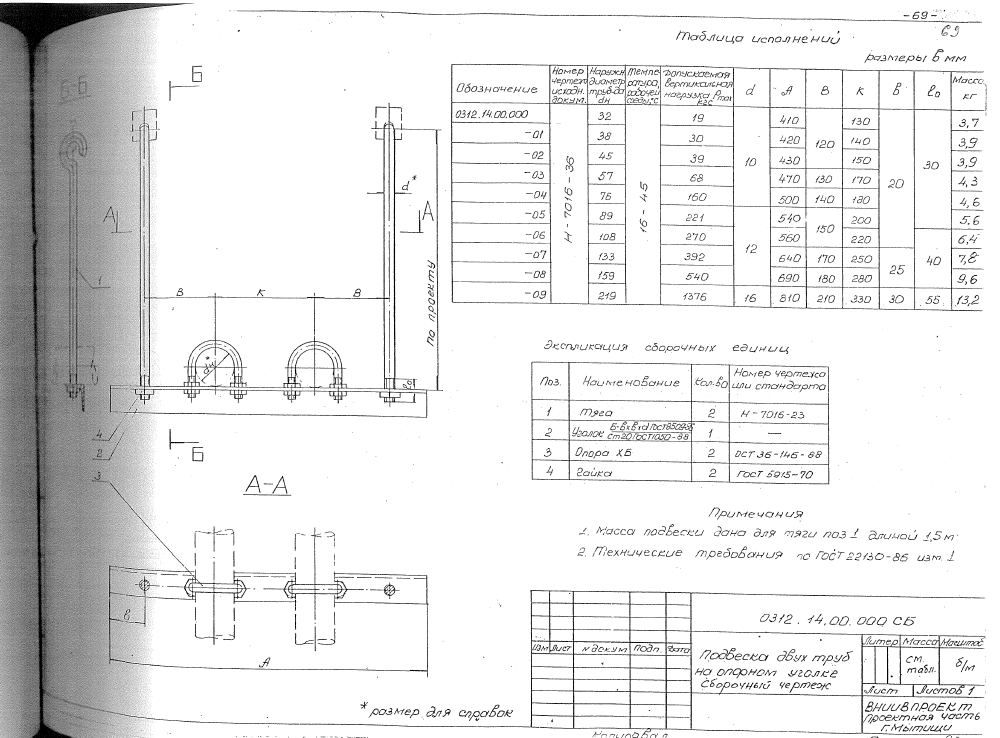 -69-
69
Таблица исполнений
размеры в мм
Обозначение | Номер чертеж исходн. докум. | Наружн. диаметр труб-да dн | Темпе ратура рабочей среды,°С | Допускаемая вертикальная нагрузка Pmax кгс | d | A | B | K | b | l₀ | Масса кг
0312.14.00.000 | Н-7016-36 | 32 | 16-45 | 19 | 10 | 410 | 120 | 130 | 20 | 30 | 3,7
-01 | 38 | 30 | 420 | 140 | 3,9
-02 | 45 | 39 | 430 | 150 | 3,9
-03 | 57 | 68 | 470 | 130 | 170 | 4,3
-04 | 76 | 160 | 500 | 140 | 180 | 4,6
-05 | 89 | 221 | 12 | 540 | 150 | 200 | 5,6
-06 | 108 | 270 | 560 | 220 | 40 | 6,4
-07 | 133 | 392 | 640 | 170 | 250 | 25 | 7,8
-08 | 159 | 540 | 690 | 180 | 280 | 9,6
-09 | 219 | 1376 | 16 | 810 | 210 | 330 | 30 | 55 | 13,2
Экспликация сборочных единиц
Поз. | Наименование | Кол-во | Номер чертежа или стандарта
1 | Тяга | 2 | Н-7016-23
2 | Уголок ст20ГОСТ1050-88 | 1 | —
3 | Опора ХБ | 2 | ОСТ 36-146-88
4 | Гайка | 2 | ГОСТ 5915-70
Примечания
1. Масса подвески дана для тяги поз 1 длиной 1,5м.
2. Технические требования по ГОСТ 22130-86 изм. 1
Б-Б
Б
А
А
d*
1
B
K
B
по проекту
dн*
l₀
4
2
3
Б
А-А
в
A
* размер для справок
0312.14.00.000 СБ
Изм Лист | N докум | Подп. | Дата
Подвеска двух труб
на опорном уголке
Сборочный чертеж
Литер | Масса | Масштаб
см. табл. | б/м
Лист | Листов 1
ВНИИВПРОЕКТ
Проектная часть
г. Мытищи
Копировал